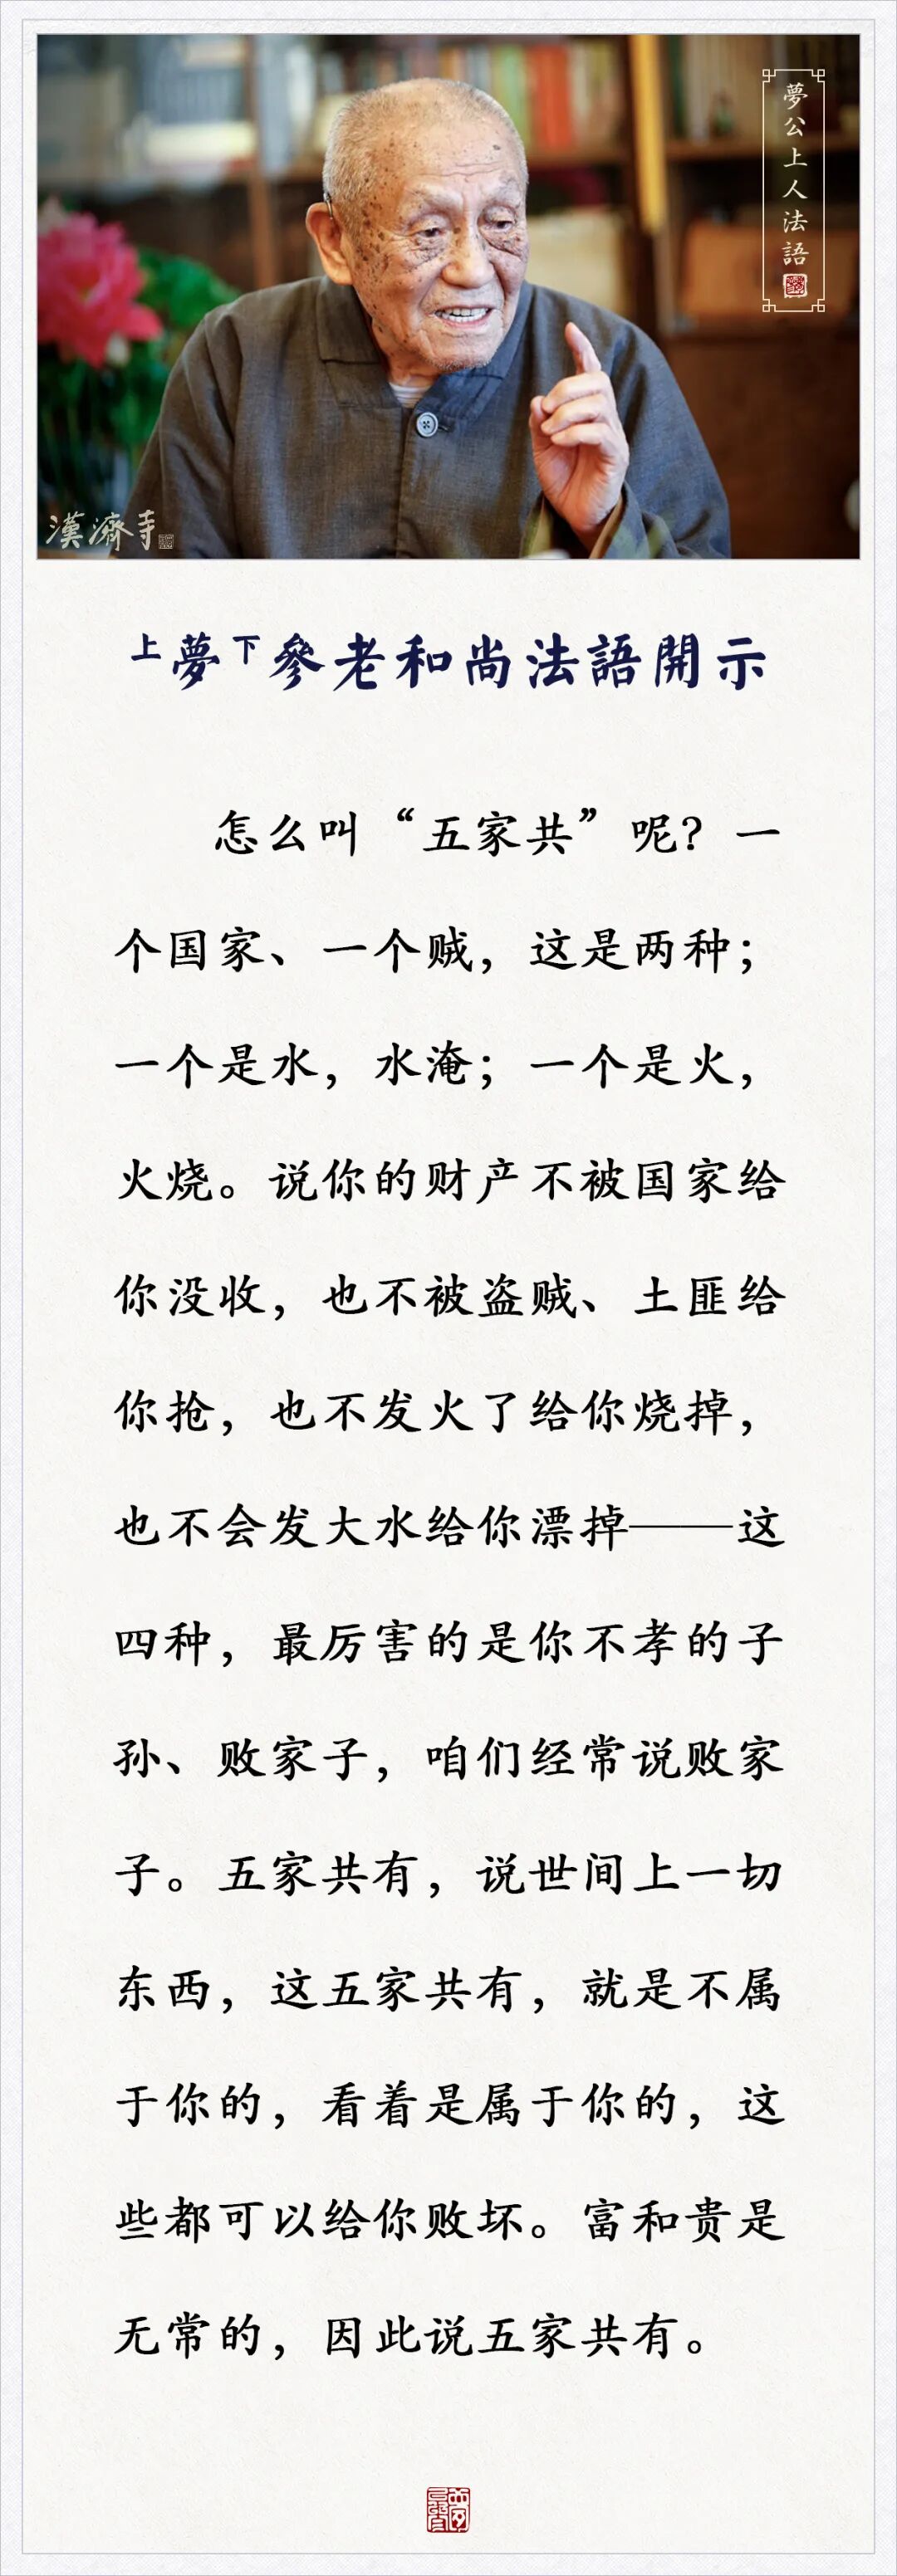 夢公上人法語
漢濟寺
上夢下參老和尚法語開示
怎么叫“五家共”呢？一
个国家、一个贼，这是两种；
一个是水，水淹；一个是火，
火烧。说你的财产不被国家给
你没收，也不被盗贼、土匪给
你抢，也不发火了给你烧掉，
也不会发大水给你漂掉——这
四种，最厉害的是你不孝的子
孙、败家子，咱们经常说败家
子。五家共有，说世间上一切
东西，这五家共有，就是不属
于你的，看着是属于你的，这
些都可以给你败坏。富和贵是
无常的，因此说五家共有。